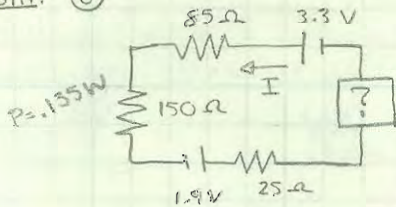 85Ω 3.3 V
I
P=.135W
150Ω
?
1.9V 25Ω